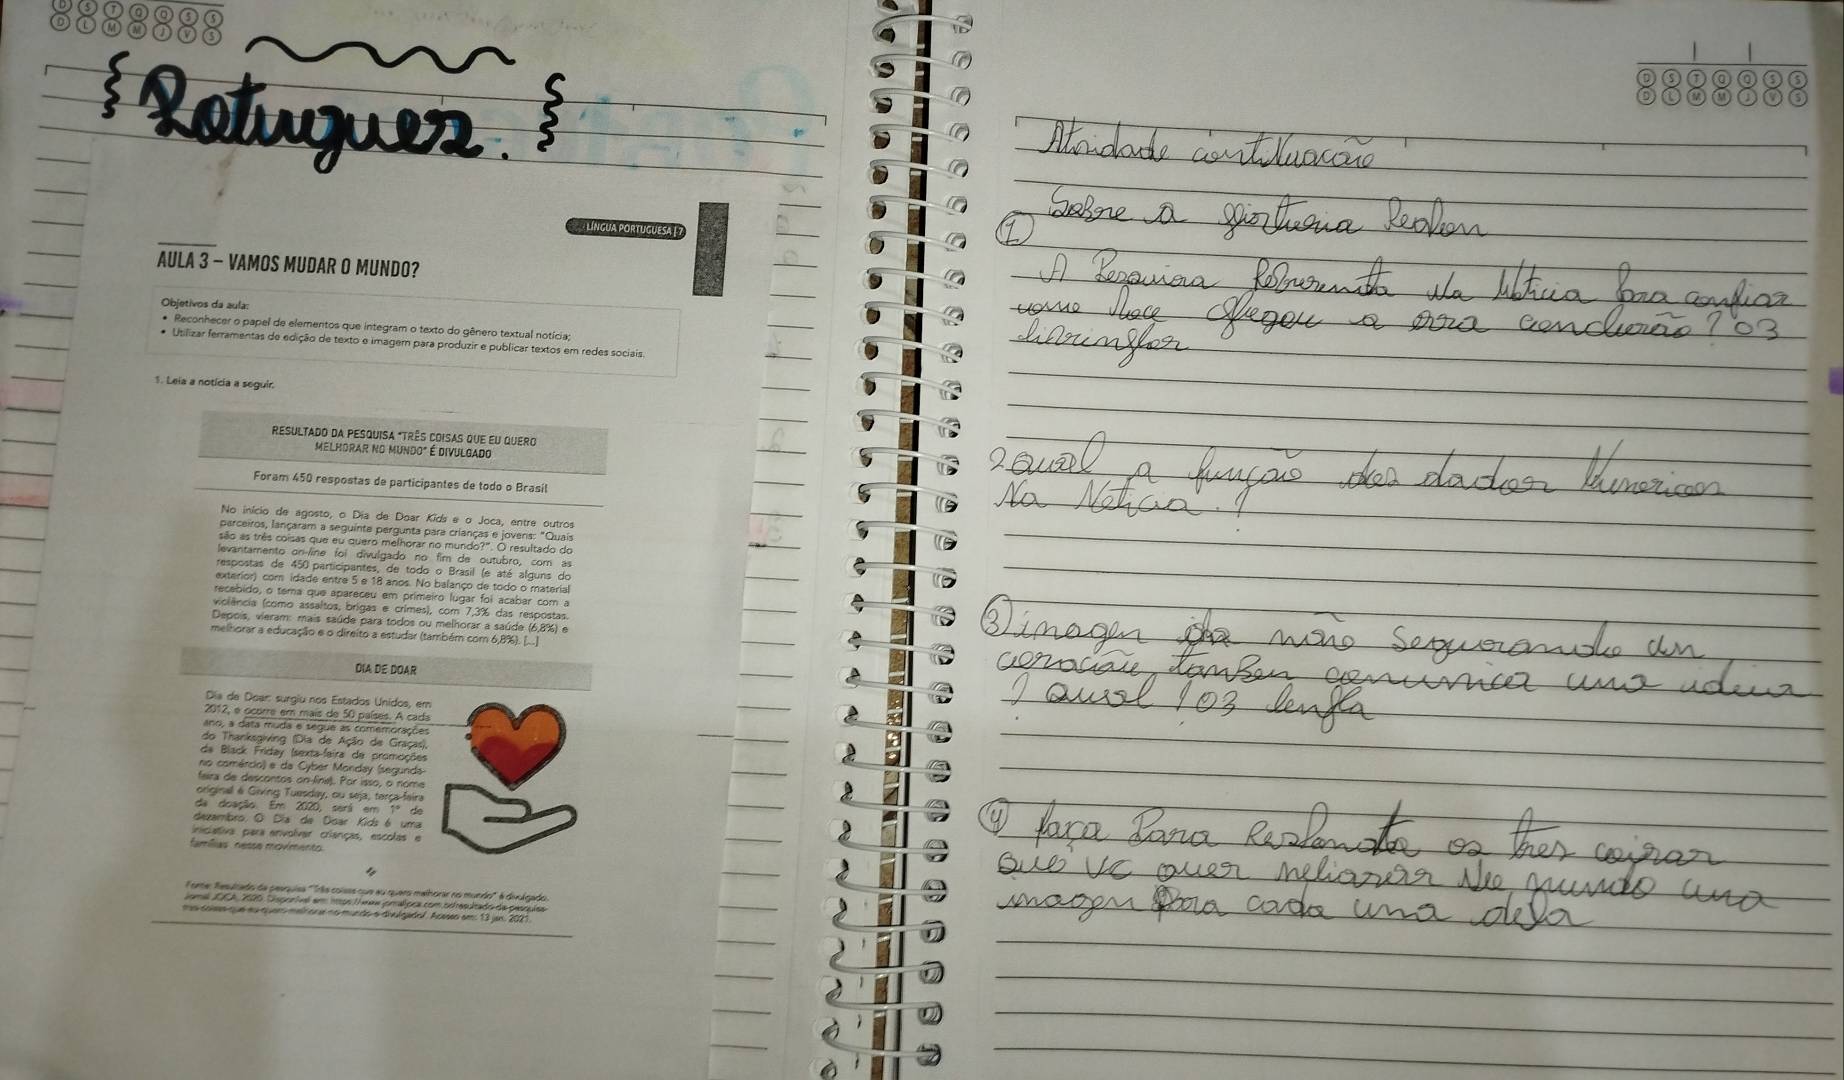 D S T Q Q S S
D L M M J V S
Potugues.
LÍNGUA PORTUGUESA | 7
AULA 3 – VAMOS MUDAR O MUNDO?
Objetivos da aula:
• Reconhecer o papel de elementos que integram o texto do gênero textual notícia;
• Utilizar ferramentas de edição de texto e imagem para produzir e publicar textos em redes sociais.
1. Leia a notícia a seguir.
RESULTADO DA PESQUISA "TRÊS COISAS QUE EU QUERO
MELHORAR NO MUNDO" É DIVULGADO
Foram 450 respostas de participantes de todo o Brasil
No início de agosto, o Dia de Doar Kids e o Joca, entre outros
parceiros, lançaram a seguinte pergunta para crianças e jovens: "Quais
são as três coisas que eu quero melhorar no mundo?". O resultado do
levantamento on-line foi divulgado no fim de outubro, com as
respostas de 450 participantes, de todo o Brasil (e até alguns do
exterior) com idade entre 5 e 18 anos. No balanço de todo o material
recebido, o tema que apareceu em primeiro lugar foi acabar com a
violência (como assaltos, brigas e crimes), com 7,3% das respostas.
Depois, vieram: mais saúde para todos ou melhorar a saúde (6,8%) e
melhorar a educação e o direito a estudar (também com 6,8%). [...]
DIA DE DOAR
Dia de Doar: surgiu nos Estados Unidos, em
2012, e ocorre em mais de 50 países. A cada
ano, a data muda e segue as comemorações
do Thanksgiving (Dia de Ação de Graças),
da Black Friday (sexta-feira de promoções
no comércio) e da Cyber Monday (segunda-
feira de descontos on-line). Por isso, o nome
original é Giving Tuesday, ou seja, terça-feira
da doação. Em 2020, será em 1º de
dezembro. O Dia de Doar Kids é uma
iniciativa para envolver crianças, escolas e
famílias nesse movimento.
Fonte: Resultado da pesquisa "Três coisas que eu quero melhorar no mundo" é divulgado.
Jornal JOCA, 2020. Disponível em: https://www.jornaljoca.com.br/resultado-da-pesquisa-
tres-coisas-que-eu-quero-melhorar-no-mundo-e-divulgado/. Acesso em: 13 jan. 2021.
D S T Q Q S S
D L M M J V S
Atividade continuação
Sobre a
①
A Pesquisa na Noticia Para confiar
como voce chegou a essa conclusão? 03
2 qual a função dos dados Numericos
Na Noticia.?
③ imagen da mão segurando un
coração tamben comunica uma ideia
? qual ! 03 linha
④ faça Para as tres coisas
que vc quer No mundo uma
imagen Para cada uma dela